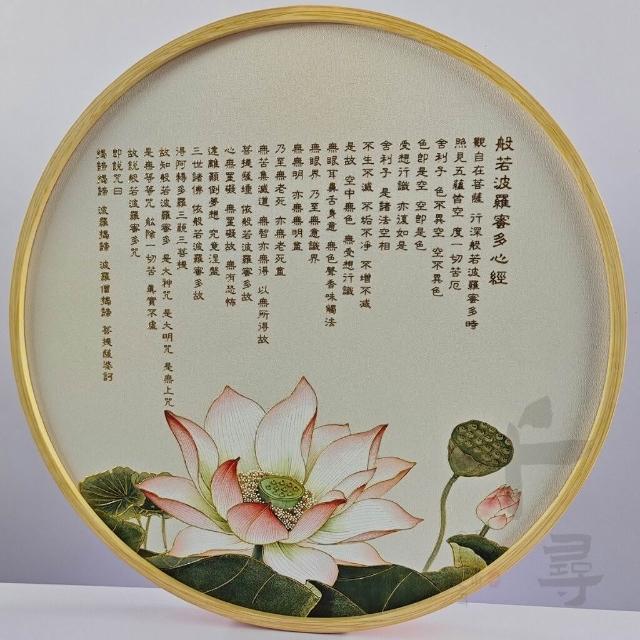 般若波羅蜜多心經
觀自在菩薩 行深般若波羅蜜多時
照見五蘊皆空 度一切苦厄
舍利子 色不異空 空不異色
色即是空 空即是色
受想行識 亦復如是
舍利子 是諸法空相
不生不滅 不垢不淨 不增不減
是故 空中無色 無受想行識
無眼耳鼻舌身意 無色聲香味觸法
無眼界 乃至無意識界
無無明 亦無無明盡
乃至無老死 亦無老死盡
無苦集滅道 無智亦無得 以無所得故
菩提薩埵 依般若波羅蜜多故
心無罣礙 無罣礙故 無有恐怖
遠離顛倒夢想 究竟涅槃
三世諸佛 依般若波羅蜜多故
得阿耨多羅三藐三菩提
故知般若波羅蜜多 是大神咒 是大明咒 是無上咒
是無等等咒 能除一切苦 真實不虛
故說般若波羅蜜多咒
即說咒曰
揭諦揭諦 波羅揭諦 波羅僧揭諦 菩提薩婆訶
尋